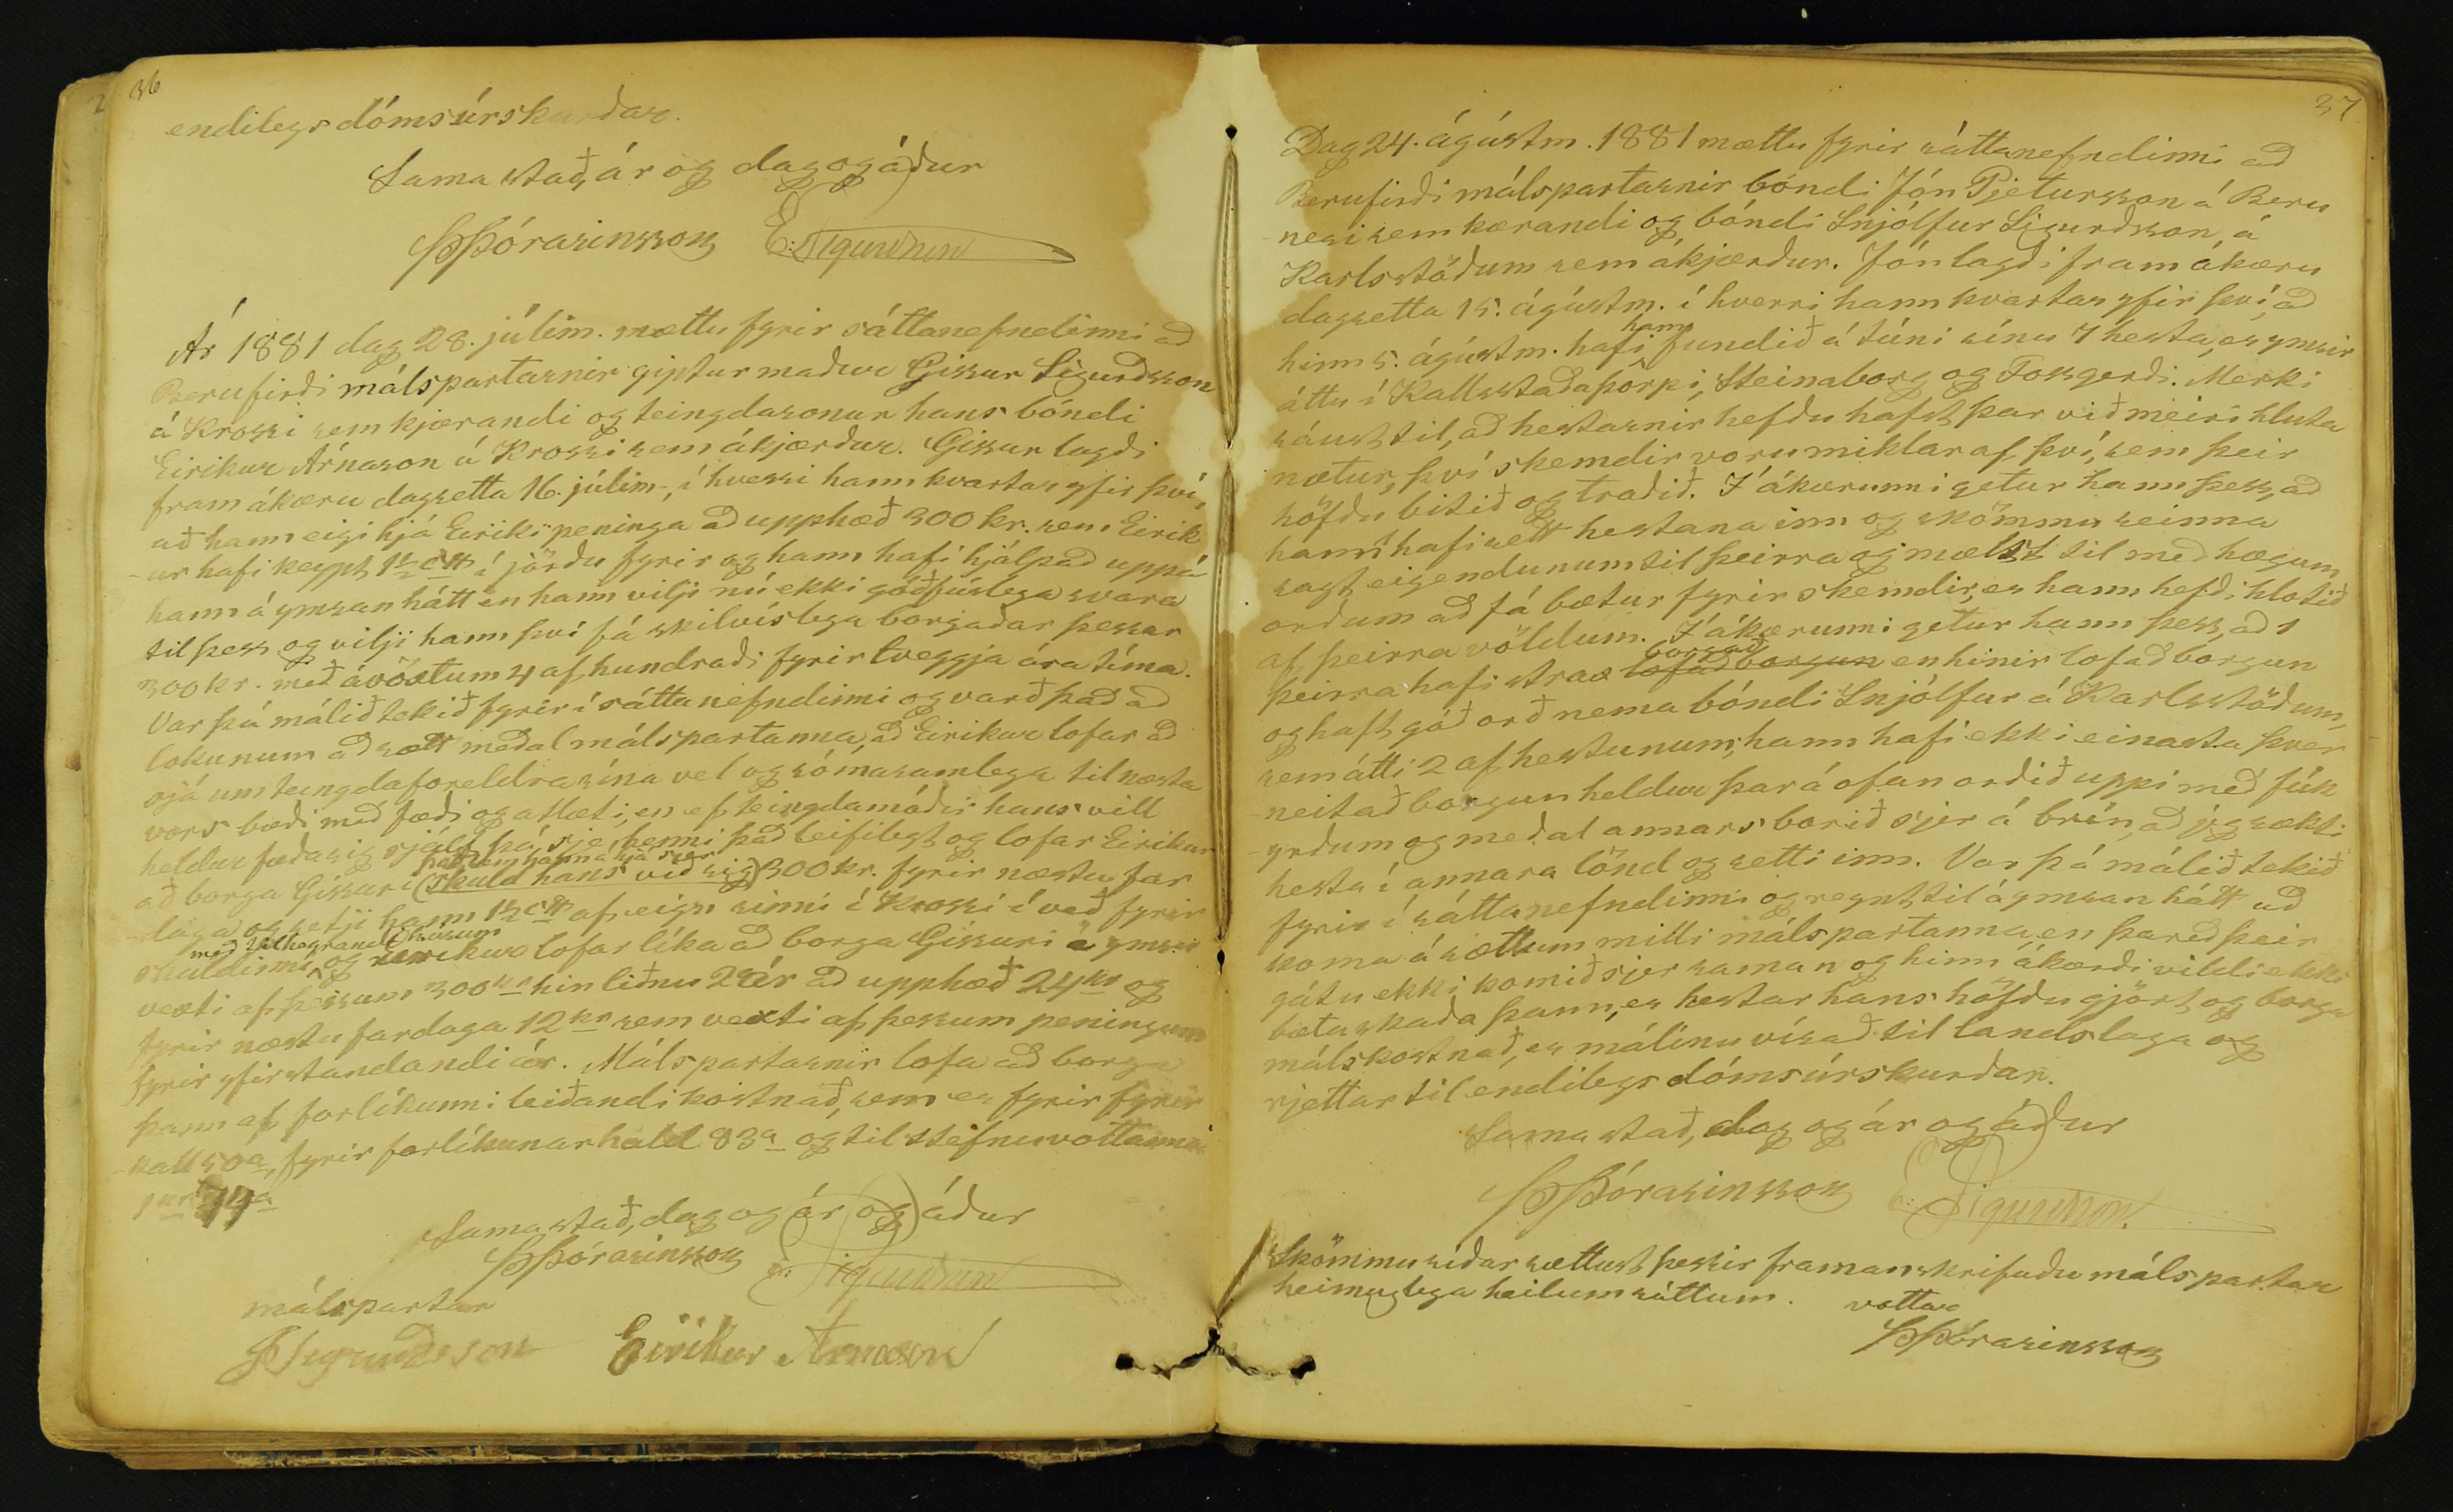 36
endilegs dómsúrskurðar.
Sama stað, ár og dag og áður
Þ Þórarinsson E: Sigurðsson
Ár 1881 dag 28. júlím. mættu fyrir sáttanefndinni að
Berufirði málspartarnir giptur maður Gissur Sigurðsson
á Krossi sem kjærandi og teingdasonur hans bóndi
Eirikur Árnason á Krossi sem ákjærður. Gissur lagði
fram ákæru dagsetta 16. júlím., í hverri hann kvartar yfir því,
að hann eigi hjá Eiríki peninga að upphæð 300 kr. sem Eirik
-ur hafi keypt 1½ c í jörðu fyrir og hann hafi hjálpað uppá
hann á ymsan hátt en hann vilji nú ekki góðfúslega svara
til þess og vilji hann því fá skilvíslega borgaðar þessar
300 kr. með ávöxtum 4 af hundraði fyrir tveggja ára tíma.
Var þá málið tekið fyrir í sáttanefndinni og varð það að
lokunum að sætt meðal málspartanna, að Eirikur lofar að
sjá um teingdaforeldra sína vel og sómasamlega til næsta
vors bæði með fæði og atlæti, en ef teingdamóðir hans vill
heldur fæða sig sjálf þá sje henni það leifilegt og lofar Eirikur
það sem hann á hjá sjer
að borga Gissuri (skuld hans við sig) 300 kr. fyrir næstu far
-daga og setji hann 1½ c af eign sinni í Krossi í veð fyrir
með
skuldinni, og Eirikur lofar líka að borga Gissuri í ymsir
vexti af þessum 300 kr hin liðnu 2 ár að upphæð 24 kr og
fyrir næstu fardaga 12 kr sem vexti af þessum peningum
fyrir yfirstandandi ár. Málspartarnir lofa að borga
þann af forlíkunni leiðandi kostnað, sem er fyrir fyrir
-kall 50 a, fyrir forlíkunarhald 83 a og til stefnuvottanna
1 kr 74 a
Sama stað, dag og ár og áður
Þ Þórarinsson E: Sigurðsson
málspartar
GSigurðsson Eirikur Arnason
37
Dag 24. ágústm. 1881 mættu fyrir sáttanefndinni að
Berufirði málspartarnir bóndi Jón Pjetursson á Beru
nesi sem kærandi og bóndi Snjólfur Sigurðsson á
Karlsstöðum sem ákjærður. Jón lagði fram ákæru
dagsetta 15. ágústm. í hverri hann kvartar yfir því, að
hann
hinn 5. ágústm. hafi fundið á túni sínu 7 hesta, er ymsir
áttu í Kallsstaðaþorpi, Steinaborg og Fossgerði. Merki
sáust til, að hestarnir hefðu hafst þar við meiri hluta
nætur, því skemdir voru miklar af því, sem þeir
höfðu bitið og traðið. Í ákærunni getur hann þess, að
hann hafi sett hestana inn og skömmu seinna
sagt eigendunum til þeirra og mælst til með hægum
orðum að fá bætur fyrir skemdir, er hann hefði hlotið
af þeirra völdum. Í ákærunni getur hann þess, að 1
borgað
þeirra hafi strax lofað borgun en hinir lofað borgun
og haft góð orð nema bóndi Snjólfur á Karlsstöðum,
sem átti 2 af hestunum; hann hafi ekki einasta þver
-neitað borgun heldur þar á ofan orðið uppi með fúk
-yrðum og meðal annars borið sjer á brýn, að jeg sækti
hesta í annara lönd og setti inn. Var þá málið tekið
fyrir í sáttanefndinni og reynt til á ymsan hátt að
koma á sættum milli málspartanna, en þareð þeir
gátu ekki komið sjer saman og hinn ákærði vildi ekki
bæta skaða þann, er hestar hans höfðu gjört og borga
málskostnað, er málinu vísað til landslaga og
rjettar til endilegs dómsúrskurðar.
Sama stað, dag og ár og áður
Þ Þórarinsson E: Sigurðsson.
Skömmu síðar sættust þessir framanskrifuðu málspartar
heimuglega heilum sáttum. vottar
Þ Þórarinsson